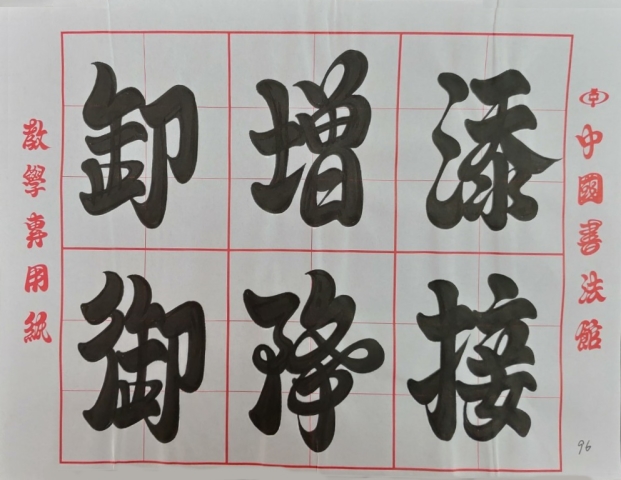 中國書法館
添增卸
接降御
教學專用紙
96